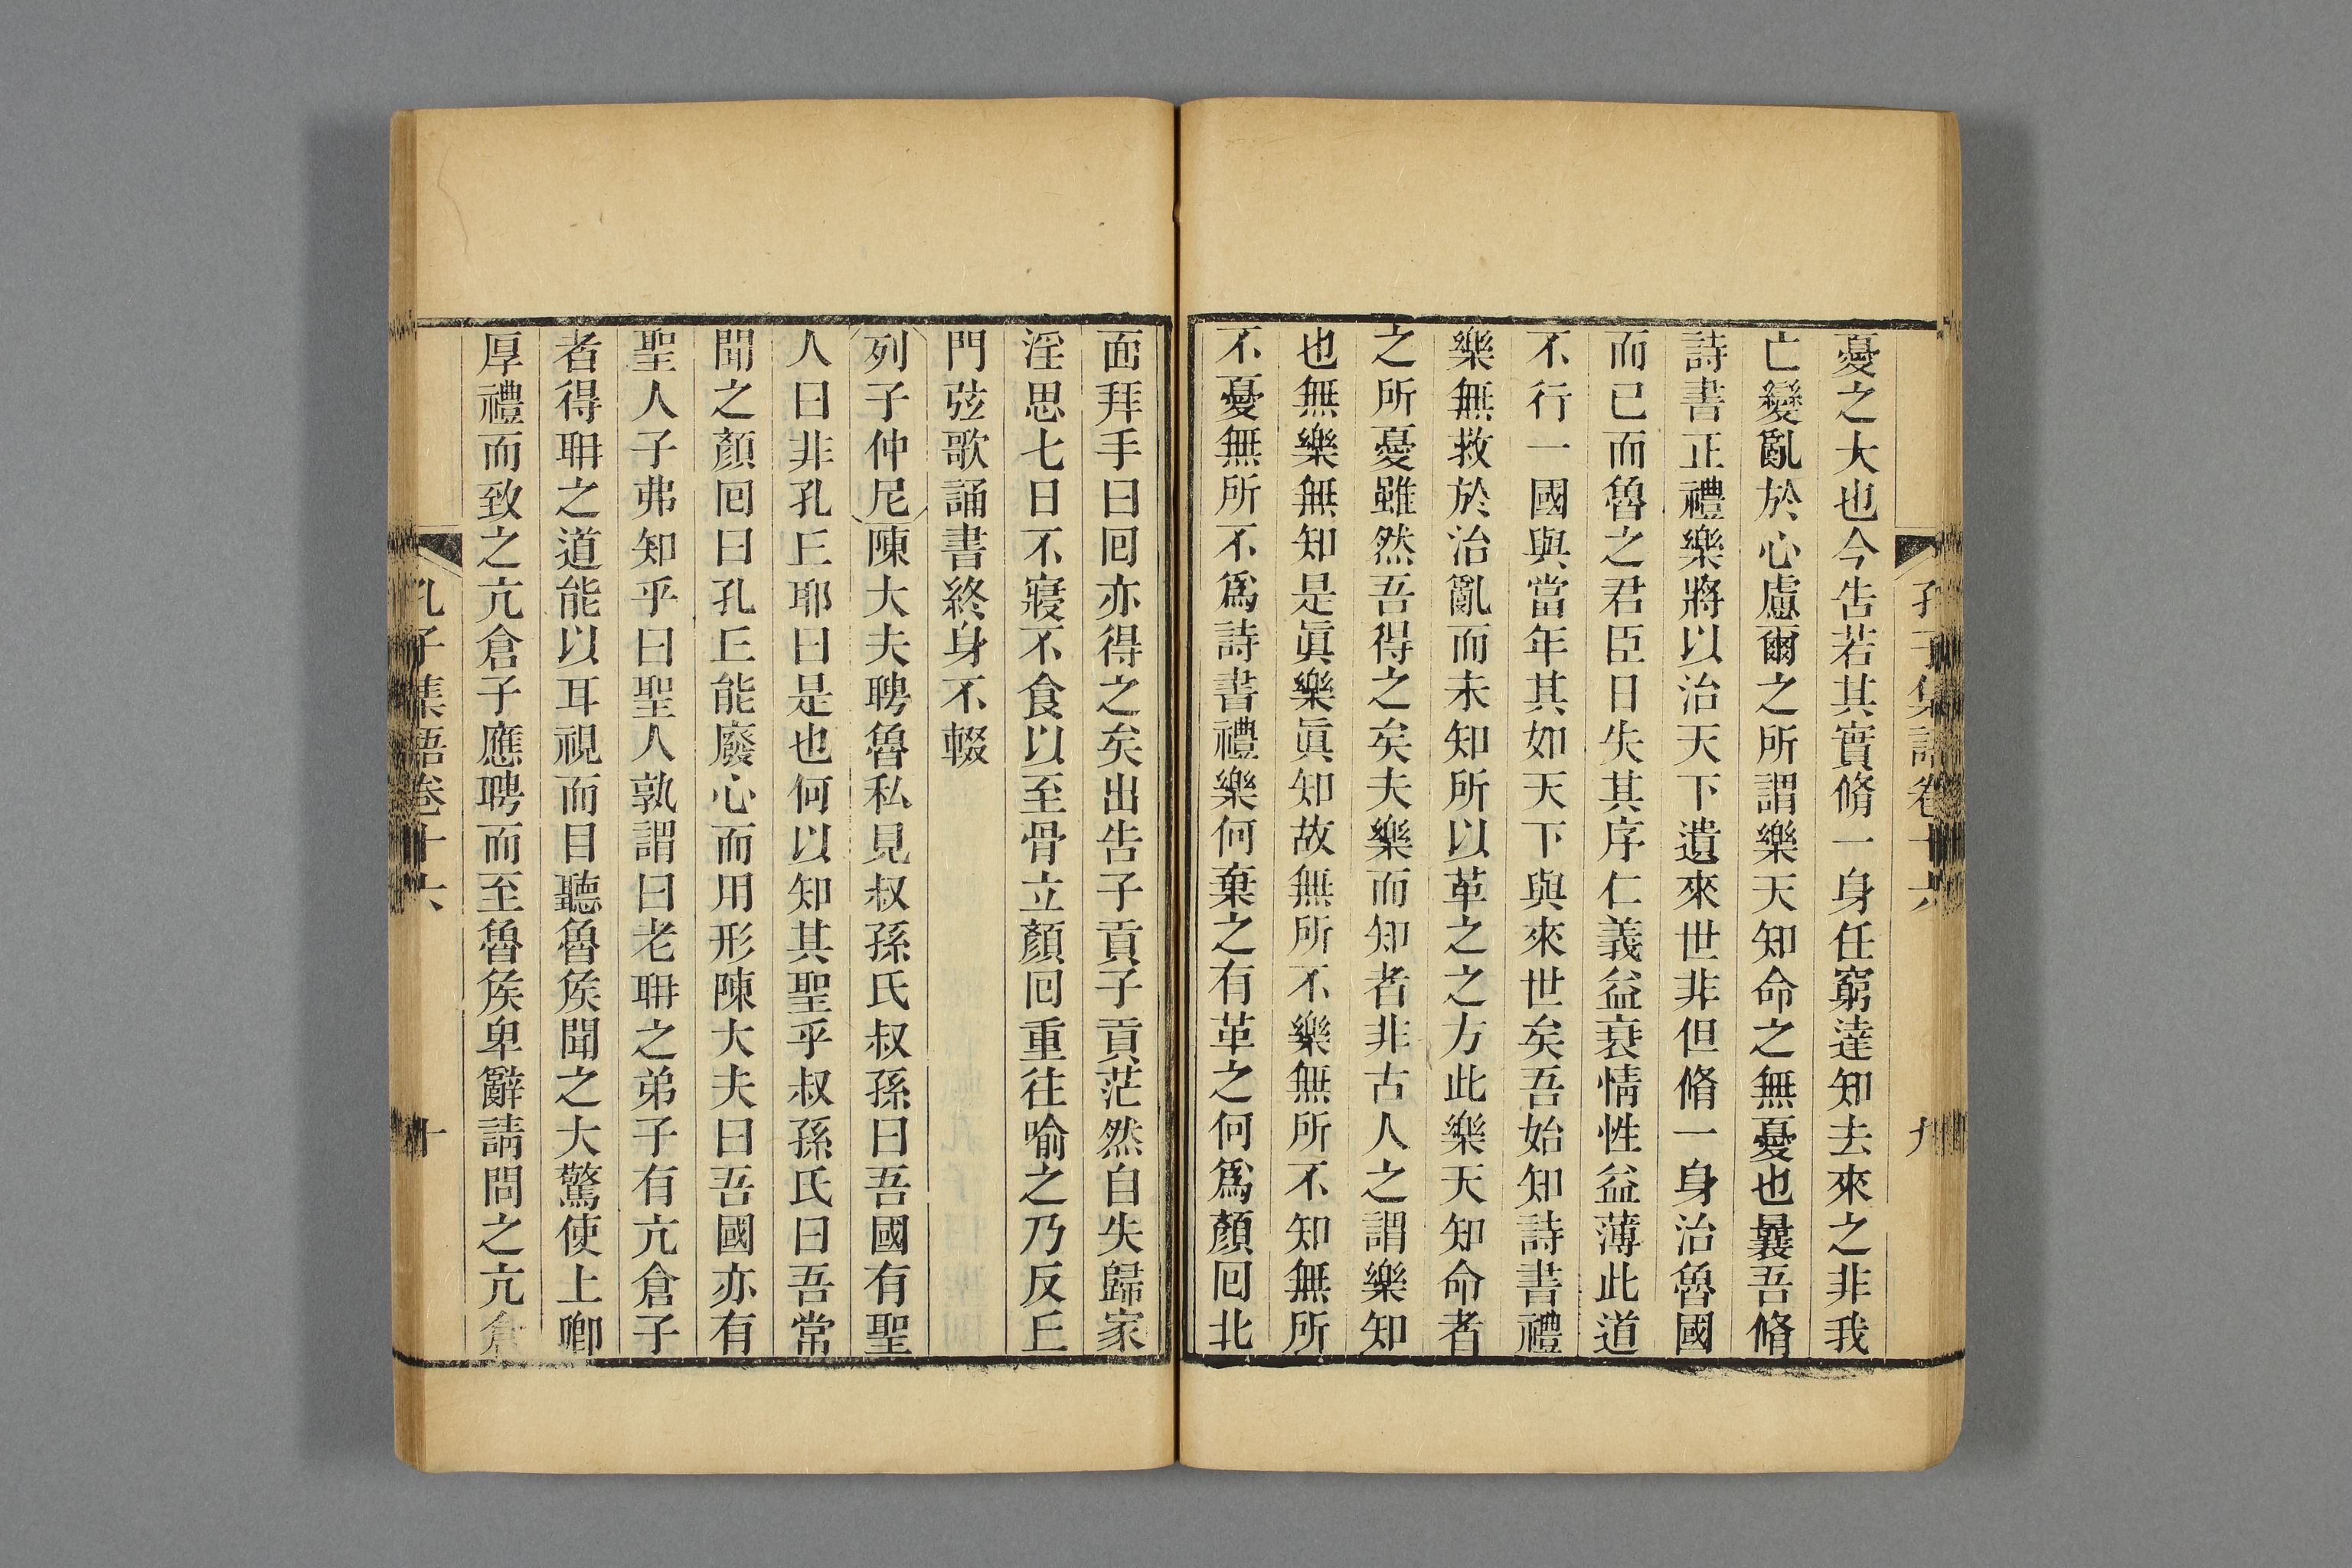 孔子集語卷十六 九
憂之大也今告若其實脩一身任窮達知去來之非我
亡變亂於心慮爾之所謂樂天知命之無憂也曩吾脩
詩書正禮樂將以治天下遺來世非但脩一身治魯國
而已而魯之君臣日失其序仁義益衰情性益薄此道
不行一國與當年其如天下與來世矣吾始知詩書禮
樂無救於治亂而未知所以革之之方此樂天知命者
之所憂雖然吾得之矣夫樂而知者非古人之謂樂知
也無樂無知是眞樂眞知故無所不樂無所不知無所
不憂無所不爲詩書禮樂何棄之有革之何爲顏回北
面拜手曰回亦得之矣出告子貢子貢茫然自失歸家
淫思七日不寢不食以至骨立顏回重往喻之乃反丘
門弦歌誦書終身不輟
列子仲尼陳大夫聘魯私見叔孫氏叔孫曰吾國有聖
人曰非孔丘耶曰是也何以知其聖乎叔孫氏曰吾常
聞之顏回曰孔丘能廢心而用形陳大夫曰吾國亦有
聖人子弗知乎曰聖人孰謂曰老耼之弟子有亢倉子
者得耼之道能以耳視而目聽魯矦聞之大驚使上卿
厚禮而致之亢倉子應聘而至魯矦卑辭請問之亢倉
孔子集語卷十六 十